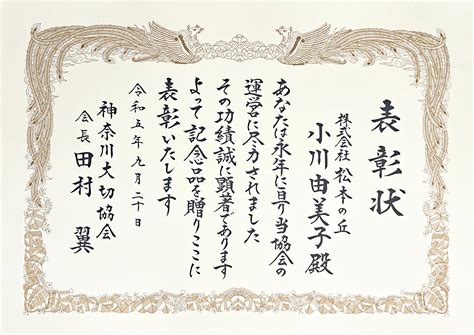 表彰状
株式会社 松本の丘
小川由美子殿
あなたは永年に亘り当協会の
運営に尽力されました
その功績誠に顕著であります
よって記念品を贈りここに
表彰いたします
令和五年九月二十日
神奈川大切協会
会長 田村 翼